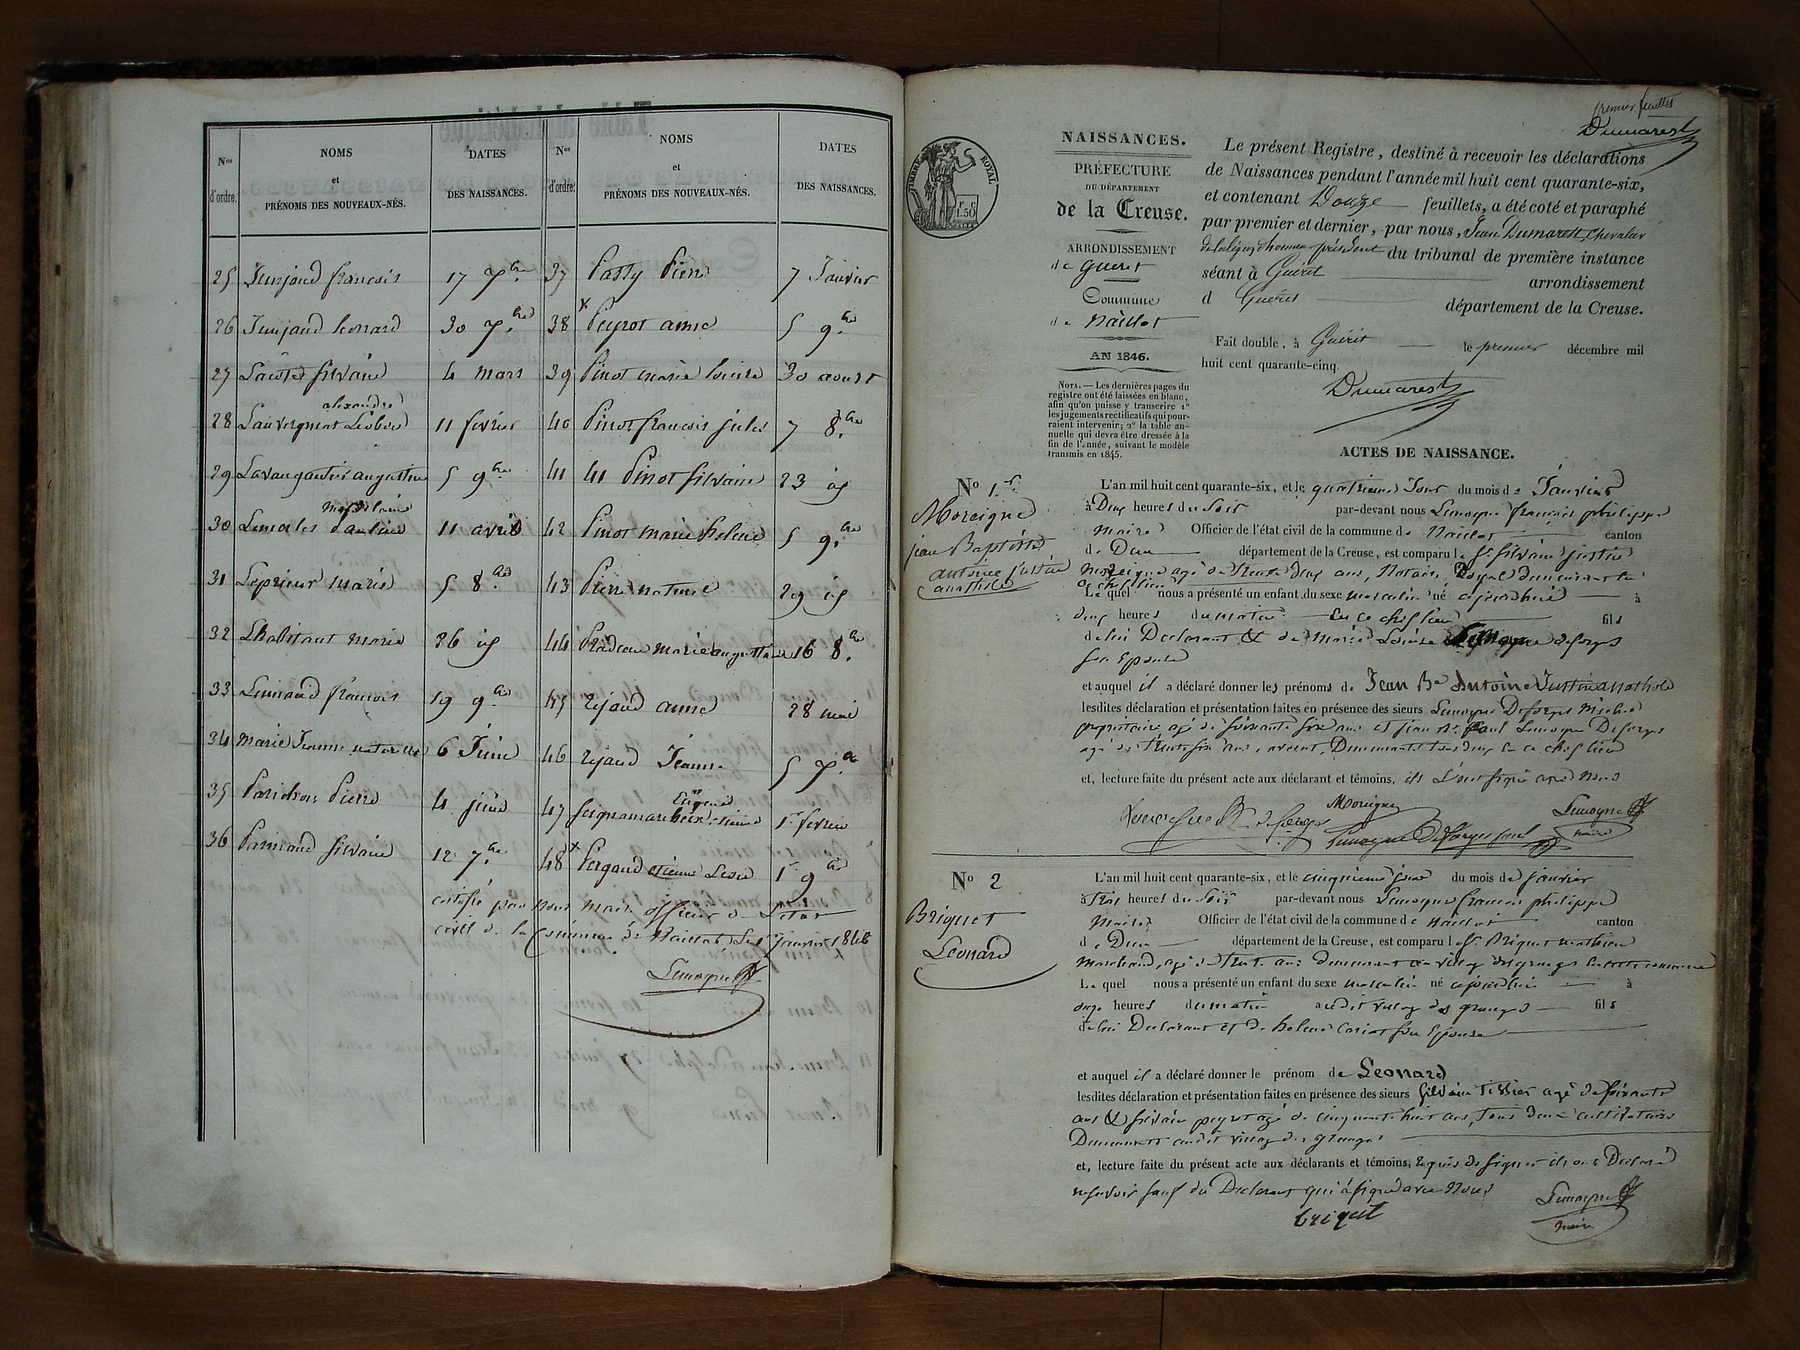 Nos d'ordre.
NOMS
et
PRÉNOMS DES NOUVEAUX-NÉS.
DATES
DES NAISSANCES.
Nos d'ordre.
NOMS
et
PRÉNOMS DES NOUVEAUX-NÉS.
DATES
DES NAISSANCES.
25 Junjaud francois 17 7bre
26 Junjaud leonard 30 7bre
27 Lacôte silvain 4 mars
alexandre
28 11 fevrier
29 5 9bre
30 11 avril
31 Leprieur marie 5 8bre
32 Lhabitant marie 26
33 francois 19 9bre
34 Marie Jeanne naturelle 6 Juin
35 Parichon Pierre 4 juin
36 silvain 12 7bre
37 Passy Pierre 7 Janvier
38 Peyrot anne 5 9bre
39 Pinot marie louise 30 aoust
40 Pinot francois jules 7 8bre
41 41 Pinot silvain 23
42 Pinot marie helene 5 9bre
43 Pierre naturel 29
44 marie augustine 16 8bre
45 Rejaud anne 28 mai
46 Rejaud Jeanne 5 7bre
47 1er fevrier
48 etienne 1er 9bre
certifié par nous maire officier de l'etat
civil de la Commune de Naillat le janvier 1846
Lemoyne
premier feuillet
Dumarest
TIMBRE ROYAL
F. C.
1.50
NAISSANCES.
PRÉFECTURE
DU DÉPARTEMENT
de la Creuse.
ARRONDISSEMENT
de Gueret
Commune
de Naillat
AN 1846.
NOTA. — Les dernières pages du
registre ont été laissées en blanc,
afin qu'on puisse y transcrire 1º
les jugements rectificatifs qui pour-
raient intervenir; 2º la table an-
nuelle qui devra être dressée à la
fin de l'année, suivant le modèle
transmis en 1845.
Le présent Registre, destiné à recevoir les déclarations
de Naissances pendant l'année mil huit cent quarante-six,
et contenant Douze feuillets, a été coté et paraphé
par premier et dernier, par nous, Jean Dumarest, Chevalier
de la légion d'honneur président du tribunal de première instance
séant à Guéret arrondissement
d Guéret département de la Creuse.
Fait double, à Guéret le premier décembre mil
huit cent quarante-cinq.
Dumarest
ACTES DE NAISSANCE.
No 1er
Moreigne
jean Baptiste
antoine justin
anathole
L'an mil huit cent quarante-six, et le quatrieme Jour du mois de Janvier
à Deux heures du Soir par-devant nous Lemoyne francois philippe
Maire Officier de l'état civil de la commune de Naillat canton
de Dun département de la Creuse, est comparu le Sr silvain justin
Moreigne agé de trente deux ans, Notaire Royal demeurant en
ce chef lieu
Le quel nous a présenté un enfant du sexe masculin né aujourdhui à
deux heures du matin En ce chef lieu fils
de lui Declarant & de Marie Louise Lemoyne desforges
son Epouse
et auquel il a déclaré donner les prénoms de Jean Bte Antoine Justin anathole
lesdites déclaration et présentation faites en présence des sieurs Lemoyne Desforges Michel
propriétaire agé de soixante six ans et jean Bte Paul Lemoyne Desforges
agé de trente six ans, avocat, Demeurants tous deux en ce chef lieu
et, lecture faite du présent acte aux déclarant et témoins, ils l'ont signé avec Nous
Moreigne
Lemoyne
maire
Lemoyne Desforges Paul
No 2
Briquet
Leonard
L'an mil huit cent quarante-six, et le cinquieme jour du mois de Janvier
à trois heures du Soir par-devant nous Lemoyne francois philippe
Maire Officier de l'état civil de la commune de Naillat canton
de Dun département de la Creuse, est comparu l Sr Briquet mathieu
Marchand, agé de trente ans demeurant au village des granges en cette commune
Le quel nous a présenté un enfant du sexe masculin né aujourdhui à
onze heures du matin audit village des granges fils
de lui Declarant et de helene Coriat son Epouse
et auquel il a déclaré donner le prénom de Leonard
lesdites déclaration et présentation faites en présence des sieurs Silvain Tixier agé de soixante
ans & silvain peyrot agé de cinquante huit ans, tous deux cultivateurs
Demeurants audit village des granges
et, lecture faite du présent acte aux déclarants et témoins, requis de signer ils ont Declaré
ne savoir sauf du Declarant qui a signé avec Nous
briquet
Lemoyne
maire